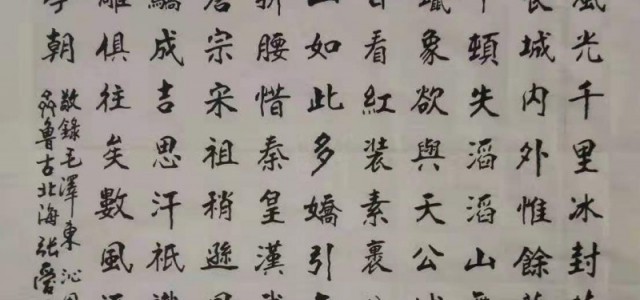 風光千里冰封
長城内外惟餘
頓失滔滔山
蠟象欲與天公
看紅裝素裹
山如此多嬌引
折腰惜秦皇漢
唐宗宋祖稍遜
驕成吉思汗祇
雕俱往矣數風
朝
敬錄毛澤東沁園
齊魯古北海張